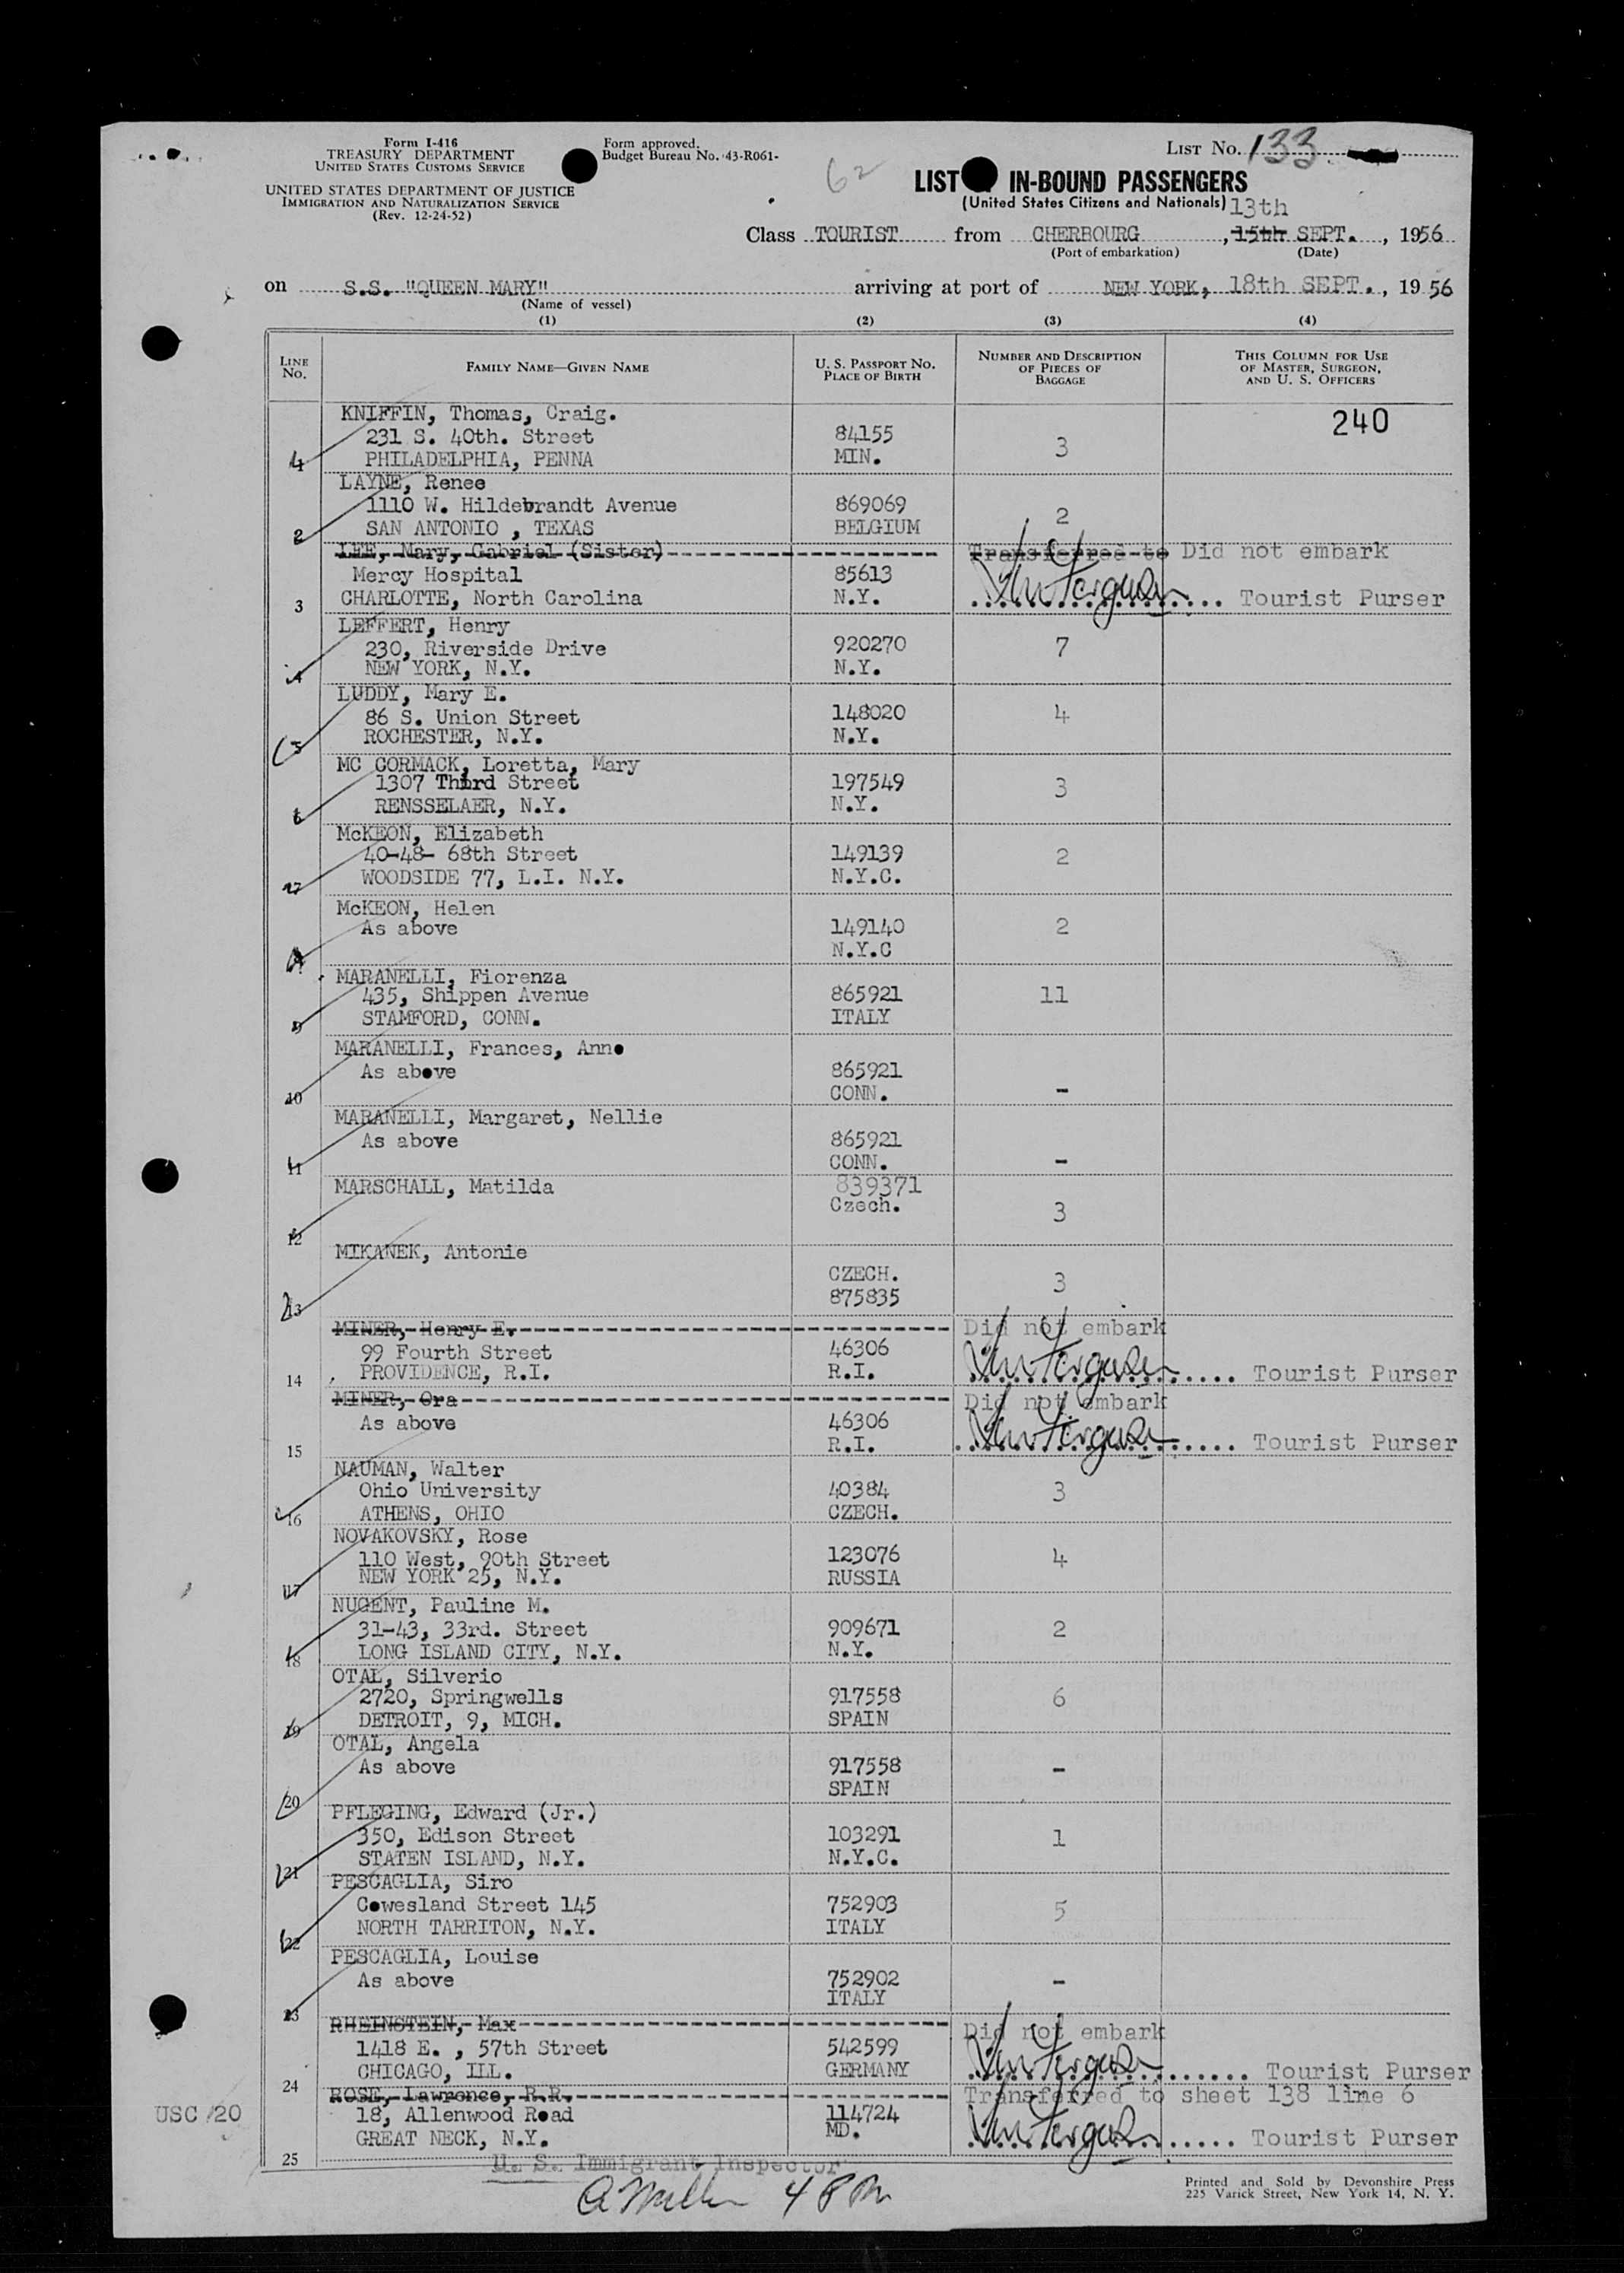 Form I-416
TREASURY DEPARTMENT
UNITED STATES CUSTOMS SERVICE
UNITED STATES DEPARTMENT OF JUSTICE
IMMIGRATION AND NATURALIZATION SERVICE
(Rev. 12-24-52)
Form approved.
Budget Bureau No. 43-R061-
62
LIST No. 133
LIST IN-BOUND PASSENGERS
(United States Citizens and Nationals)
13th
Class TOURIST from CHERBOURG, 15th SEPT., 1956
(Port of embarkation) (Date)
on S.S. "QUEEN MARY" arriving at port of NEW YORK, 18th SEPT., 1956
(Name of vessel)
(1) (2) (3) (4)
LINE No. FAMILY NAME—GIVEN NAME U. S. PASSPORT NO. PLACE OF BIRTH NUMBER AND DESCRIPTION OF PIECES OF BAGGAGE THIS COLUMN FOR USE OF MASTER, SURGEON, AND U. S. OFFICERS
KNIFFIN, Thomas, Craig. 240
231 S. 40th. Street 84155 3
PHILADELPHIA, PENNA MIN.
LAYNE, Renee
1110 W. Hildebrandt Avenue 869069 2
2 SAN ANTONIO , TEXAS BELGIUM
LEE, Mary, Gabriel (Sister) Transferred to Did not embark
Mercy Hospital 85613
3 CHARLOTTE, North Carolina N.Y. Tourist Purser
LEFFERT, Henry
230, Riverside Drive 920270 7
4 NEW YORK, N.Y. N.Y.
LUDDY, Mary E.
86 S. Union Street 148020 4
5 ROCHESTER, N.Y. N.Y.
MC CORMACK, Loretta, Mary
1307 Third Street 197549 3
6 RENSSELAER, N.Y. N.Y.
McKEON, Elizabeth
40-48- 68th Street 149139 2
7 WOODSIDE 77, L.I. N.Y. N.Y.C.
McKEON, Helen
As above 149140 2
8 N.Y.C
MARANELLI, Fiorenza
435, Shippen Avenue 865921 11
9 STAMFORD, CONN. ITALY
MARANELLI, Frances, Anne
As above 865921
10 CONN. -
MARANELLI, Margaret, Nellie
As above 865921
11 CONN. -
MARSCHALL, Matilda 839371
Czech. 3
12
MIKANEK, Antonie
CZECH. 3
13 875835
MINER, Henry E. Did not embark
99 Fourth Street 46306
14 PROVIDENCE, R.I. R.I. Tourist Purser
MINER, Ora Did not embark
As above 46306
15 R.I. Tourist Purser
NAUMAN, Walter
Ohio University 40384 3
16 ATHENS, OHIO CZECH.
NOVAKOVSKY, Rose
110 West, 90th Street 123076 4
17 NEW YORK 25, N.Y. RUSSIA
NUGENT, Pauline M.
31-43, 33rd. Street 909671 2
18 LONG ISLAND CITY, N.Y. N.Y.
OTAL, Silverio
2720, Springwells 917558 6
19 DETROIT, 9, MICH. SPAIN
OTAL, Angela
As above 917558 -
20 SPAIN
PFLEGING, Edward (Jr.)
350, Edison Street 103291 1
21 STATEN ISLAND, N.Y. N.Y.C.
PESCAGLIA, Siro
Cowesland Street 145 752903 5
22 NORTH TARRITON, N.Y. ITALY
PESCAGLIA, Louise
As above 752902 -
23 ITALY
RHEINSTEIN, Max Did not embark
1418 E. , 57th Street 542599
24 CHICAGO, ILL. GERMANY Tourist Purser
ROSE, Lawrence, R.R. Transferred to sheet 138 line 6
USC /20 18, Allenwood Road 114724
25 GREAT NECK, N.Y. MD. Tourist Purser
U. S. Immigrant Inspector
Printed and Sold by Devonshire Press
225 Varick Street, New York 14, N. Y.